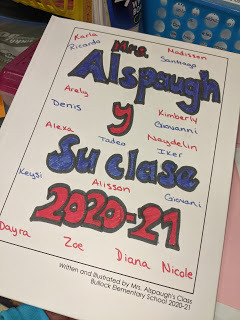 Karla Mrs. Madissen
Ricardo Santiago
Alspaugh
Araly Kimberly
Denis y Giovanni
Alexa Naydelin
Tadeo Iker
Su clase
Keysi Alisson Giovani
2020-21
Dayra Zoe Diana Nicole
Written and Illustrated by Mrs. Alspaugh's Class
Bullock Elementary School 2020-21